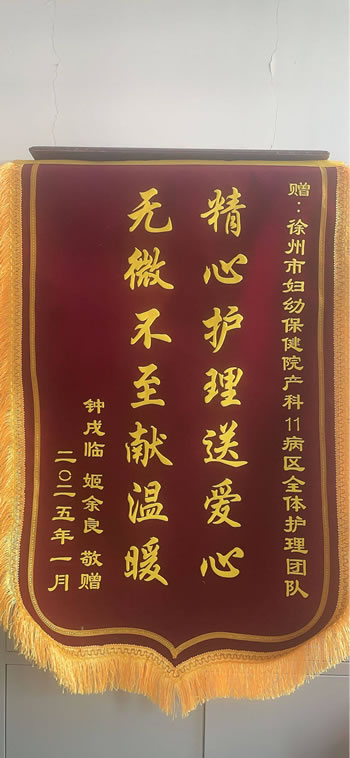 赠：徐州市妇幼保健院产科11病区全体护理团队
精心护理送爱心
无微不至献温暖
钟戌临 姬余良 敬赠
二〇二五年一月